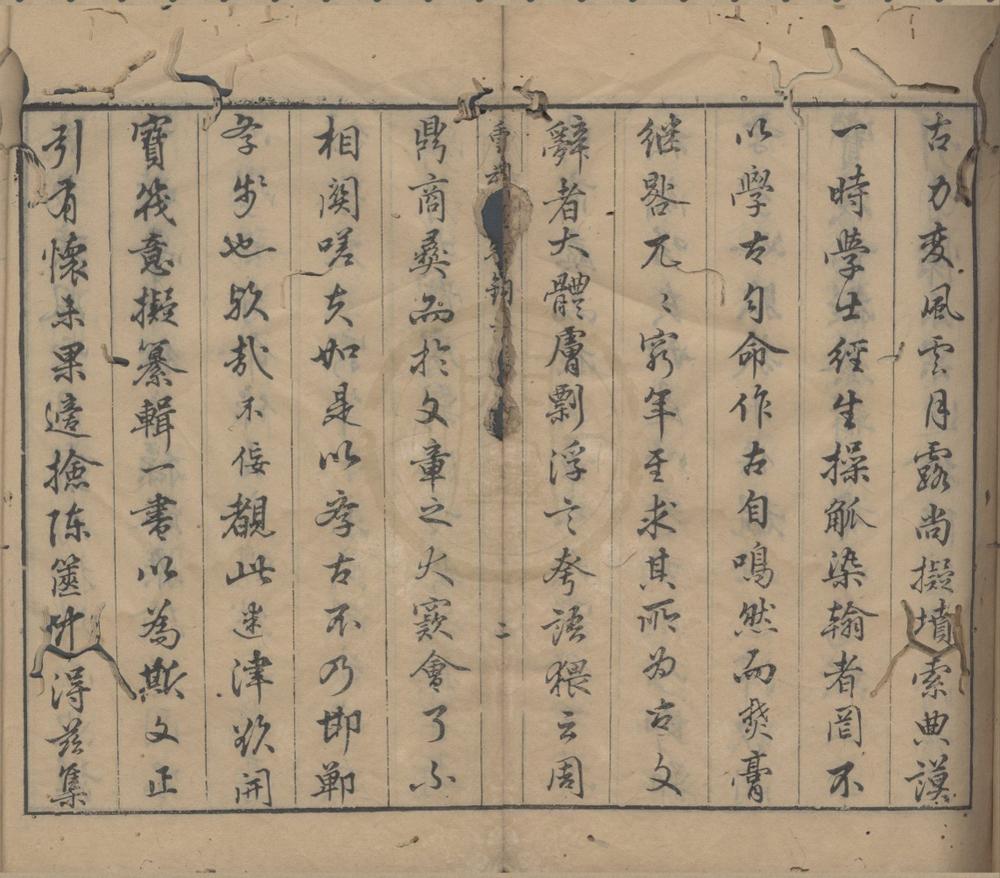 古力变風雲月露尚擬墳索典謨
一時學士經生操觚染翰者罔不
以學古自命作古自鳴然而焚膏
继晷兀々窮年至求其所为古文
辭者大體膚剽浮之夸語猥云周
鼎商彝而於文章之大窾會了不
相関嗟夫如是以孝古不乃邯鄲
孝步也歟哉不佞覩此迷津欲開
寶筏意擬纂輯一書以為斯文正
引有懷未果適撿陈篋忻得茲集
二